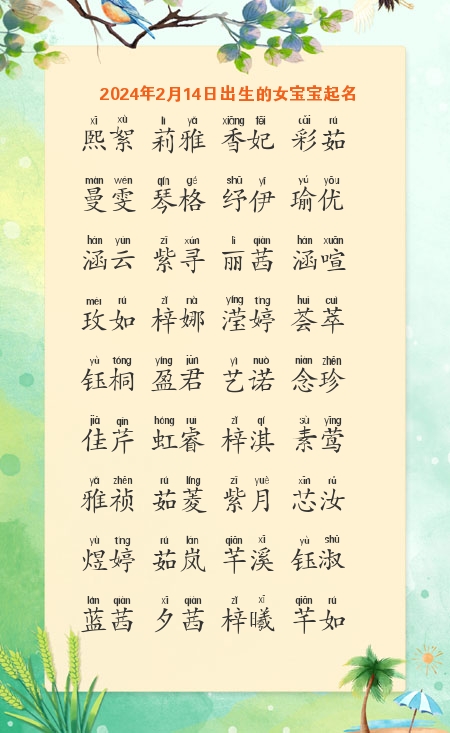 2024年2月14日出生的女宝宝起名
xī xù lì yǎ xiāng fēi cǎi rú
熙絮 莉雅 香妃 彩茹
màn wén qín gé shū yī yú yōu
曼雯 琴格 纾伊 瑜优
hán yún zǐ xún lì qiàn hán xuān
涵云 紫寻 丽茜 涵喧
méi rú zǐ nà yíng tíng huì cuì
玫如 梓娜 滢婷 荟萃
yù tóng yíng jūn yì nuò niàn zhēn
钰桐 盈君 艺诺 念珍
jiā qín hóng ruì zǐ qí sù yīng
佳芹 虹睿 梓淇 素莺
yǎ zhēn rú líng zǐ yuè xīn rǔ
雅祯 茹菱 紫月 芯汝
yù tíng rú lán qiān xī yù shū
煜婷 茹岚 芊溪 钰淑
lán qiàn xī qiàn zǐ xī qiān rú
蓝茜 夕茜 梓曦 芊如